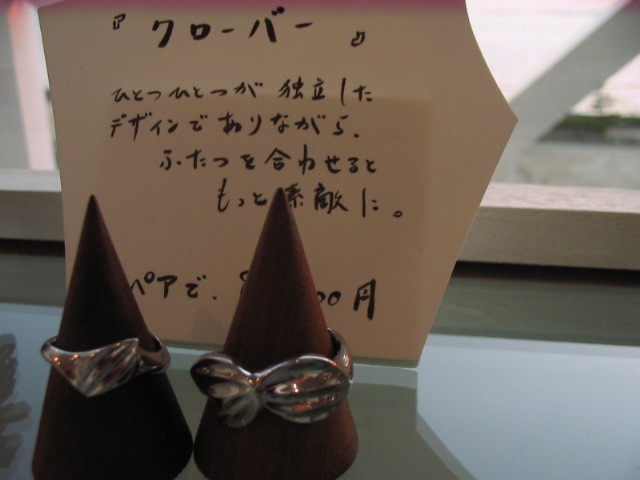 『クローバー』
ひとつひとつが独立した
デザインでありながら、
ふたつを合わせると
もっと素敵に。
ペアで、 00円